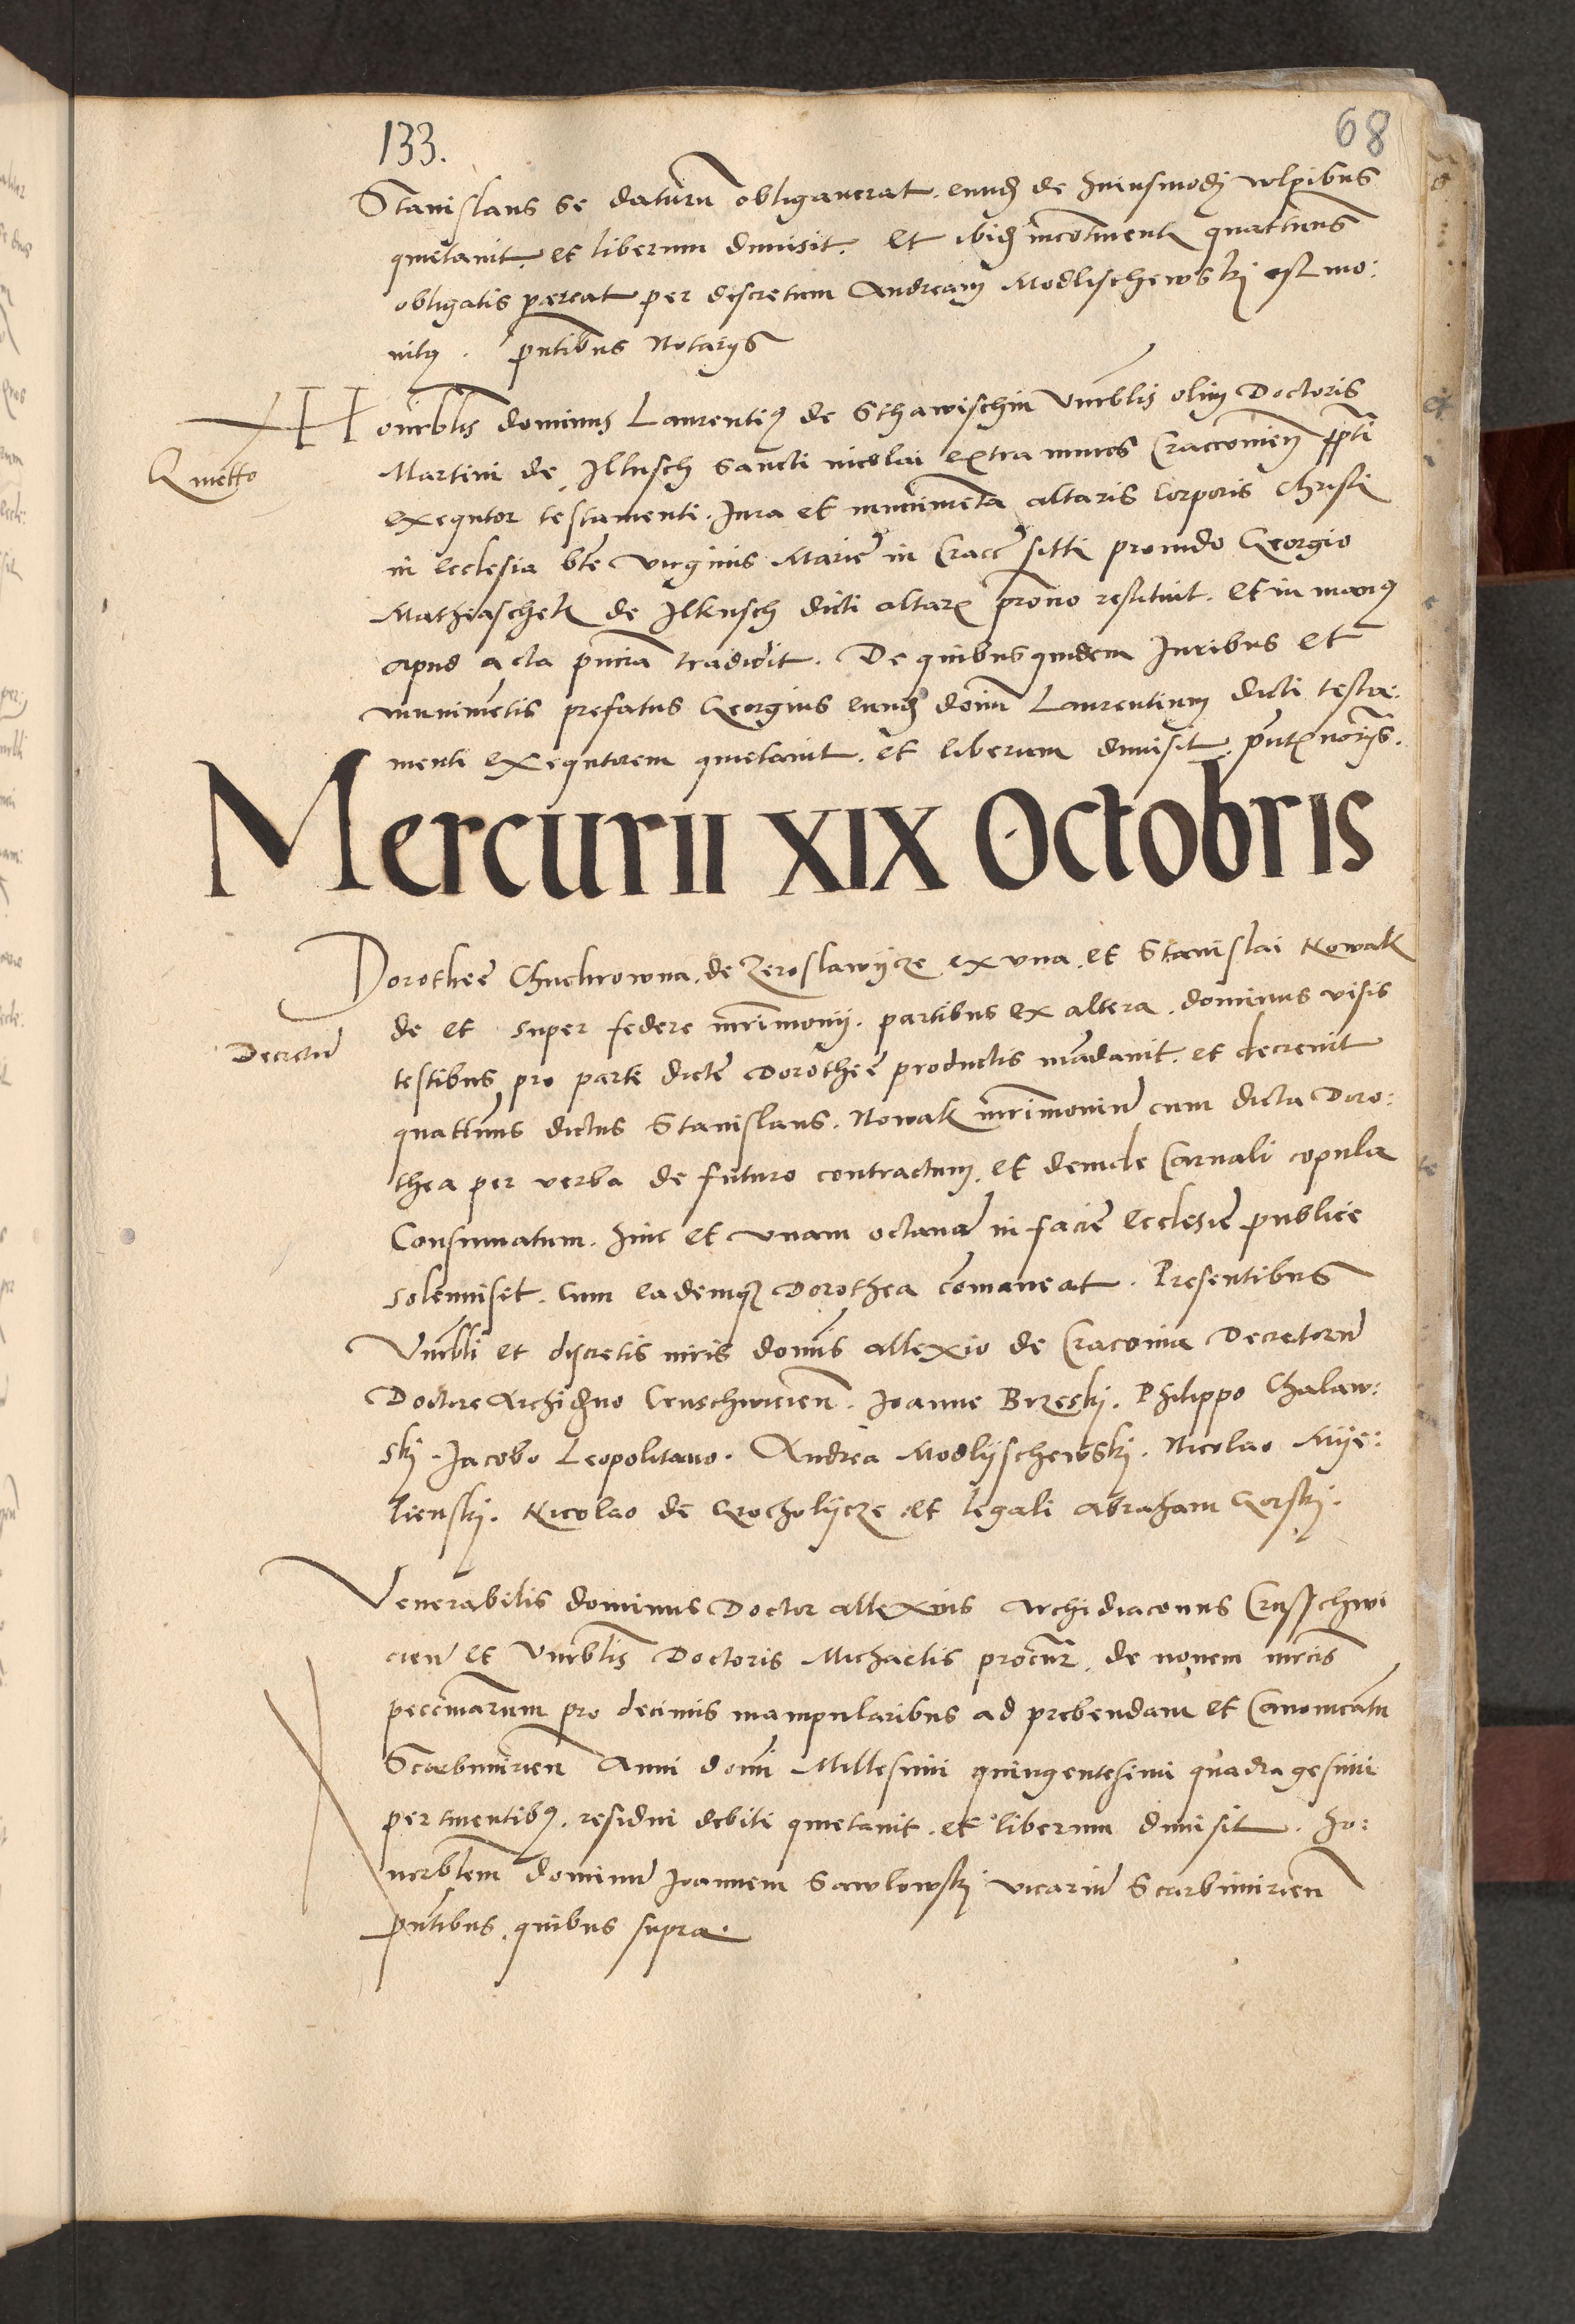 133.
68
Stanislaus se daturu obligauerat. eund de huiusmodi vulpibus
quietauit. et liberum dimisit. Et ibid incontinent quattinus
obligatis pareat per discretum Andream Modlischewski est mo:
nitus. pntibus Notarijs
Honorblis dominus Laurentius de Sthawischin Vnrblis olim Doctoris
Quietto
Martini de Ilkusch Sancti nicolai extra muros Cracouien ppti
exequtor testamenti. Jura et munimeta altaris Corporis Christi
in Ecclesia bte Virginis Marie in Cracc siti prouido Georgio
Mathiaschek de Ilkusch dicti altaris prono restituit. et in manus
apud acta pncia tradidit. De quibus quidem Juribus et
munimetis prefatus Georgius eund doim Laurentium dicti testa:
menti exequtorem quietauit. et liberum dimisit. pntibus norijs.
Mercurii XIX Octobris
Dorothee Chuchrowna. de Zeroslawijcze ex vna. et Stanislai Nowak
de et super federe mrimonij. partibus ex altera. dominus visis
Decretu
testibus pro parte dicte Dorothee productis madauit. et decreuit
quattinus dictus Stanislaus. Nowak mrimoniu cum dicta Doro:
thea per verba de futuro contractum. et deinde Carnali copula
Consumatum. hinc et vnam octaua in facie Ecclesie publice
solemniset. Cum eademque Dorothea comaneat. Presentibus
Vnrbli et discretis viris domis allexio de Cracouia Decretoru
Doctore Archidno Cruschwicien. Joanne Brzeski. Philippo Chalaw:
ski. Jacobo Leopolitano. Andrea Modlijschewski. Nicolao Mije:
lienski. Nicolao de Grocholijcze et legali Abraham Gorski.
Venerabilis dominus Doctor allexius Archidiaconus Crusschwi
cien et Vnrblis Doctoris Michaelis procur. de nouem mrcis
pecuniarum pro decimis manipularibus ad prebendam et Canonicatu
Scarbimirien Anni domi Millesimi quingentesimi quadragesimi
pertinentibus. residui debiti quietauit. et liberum dimisit. ho:
norblem dominu Joannem Sawlowski vicariu Scarbimirien
pntibus quibus supra.